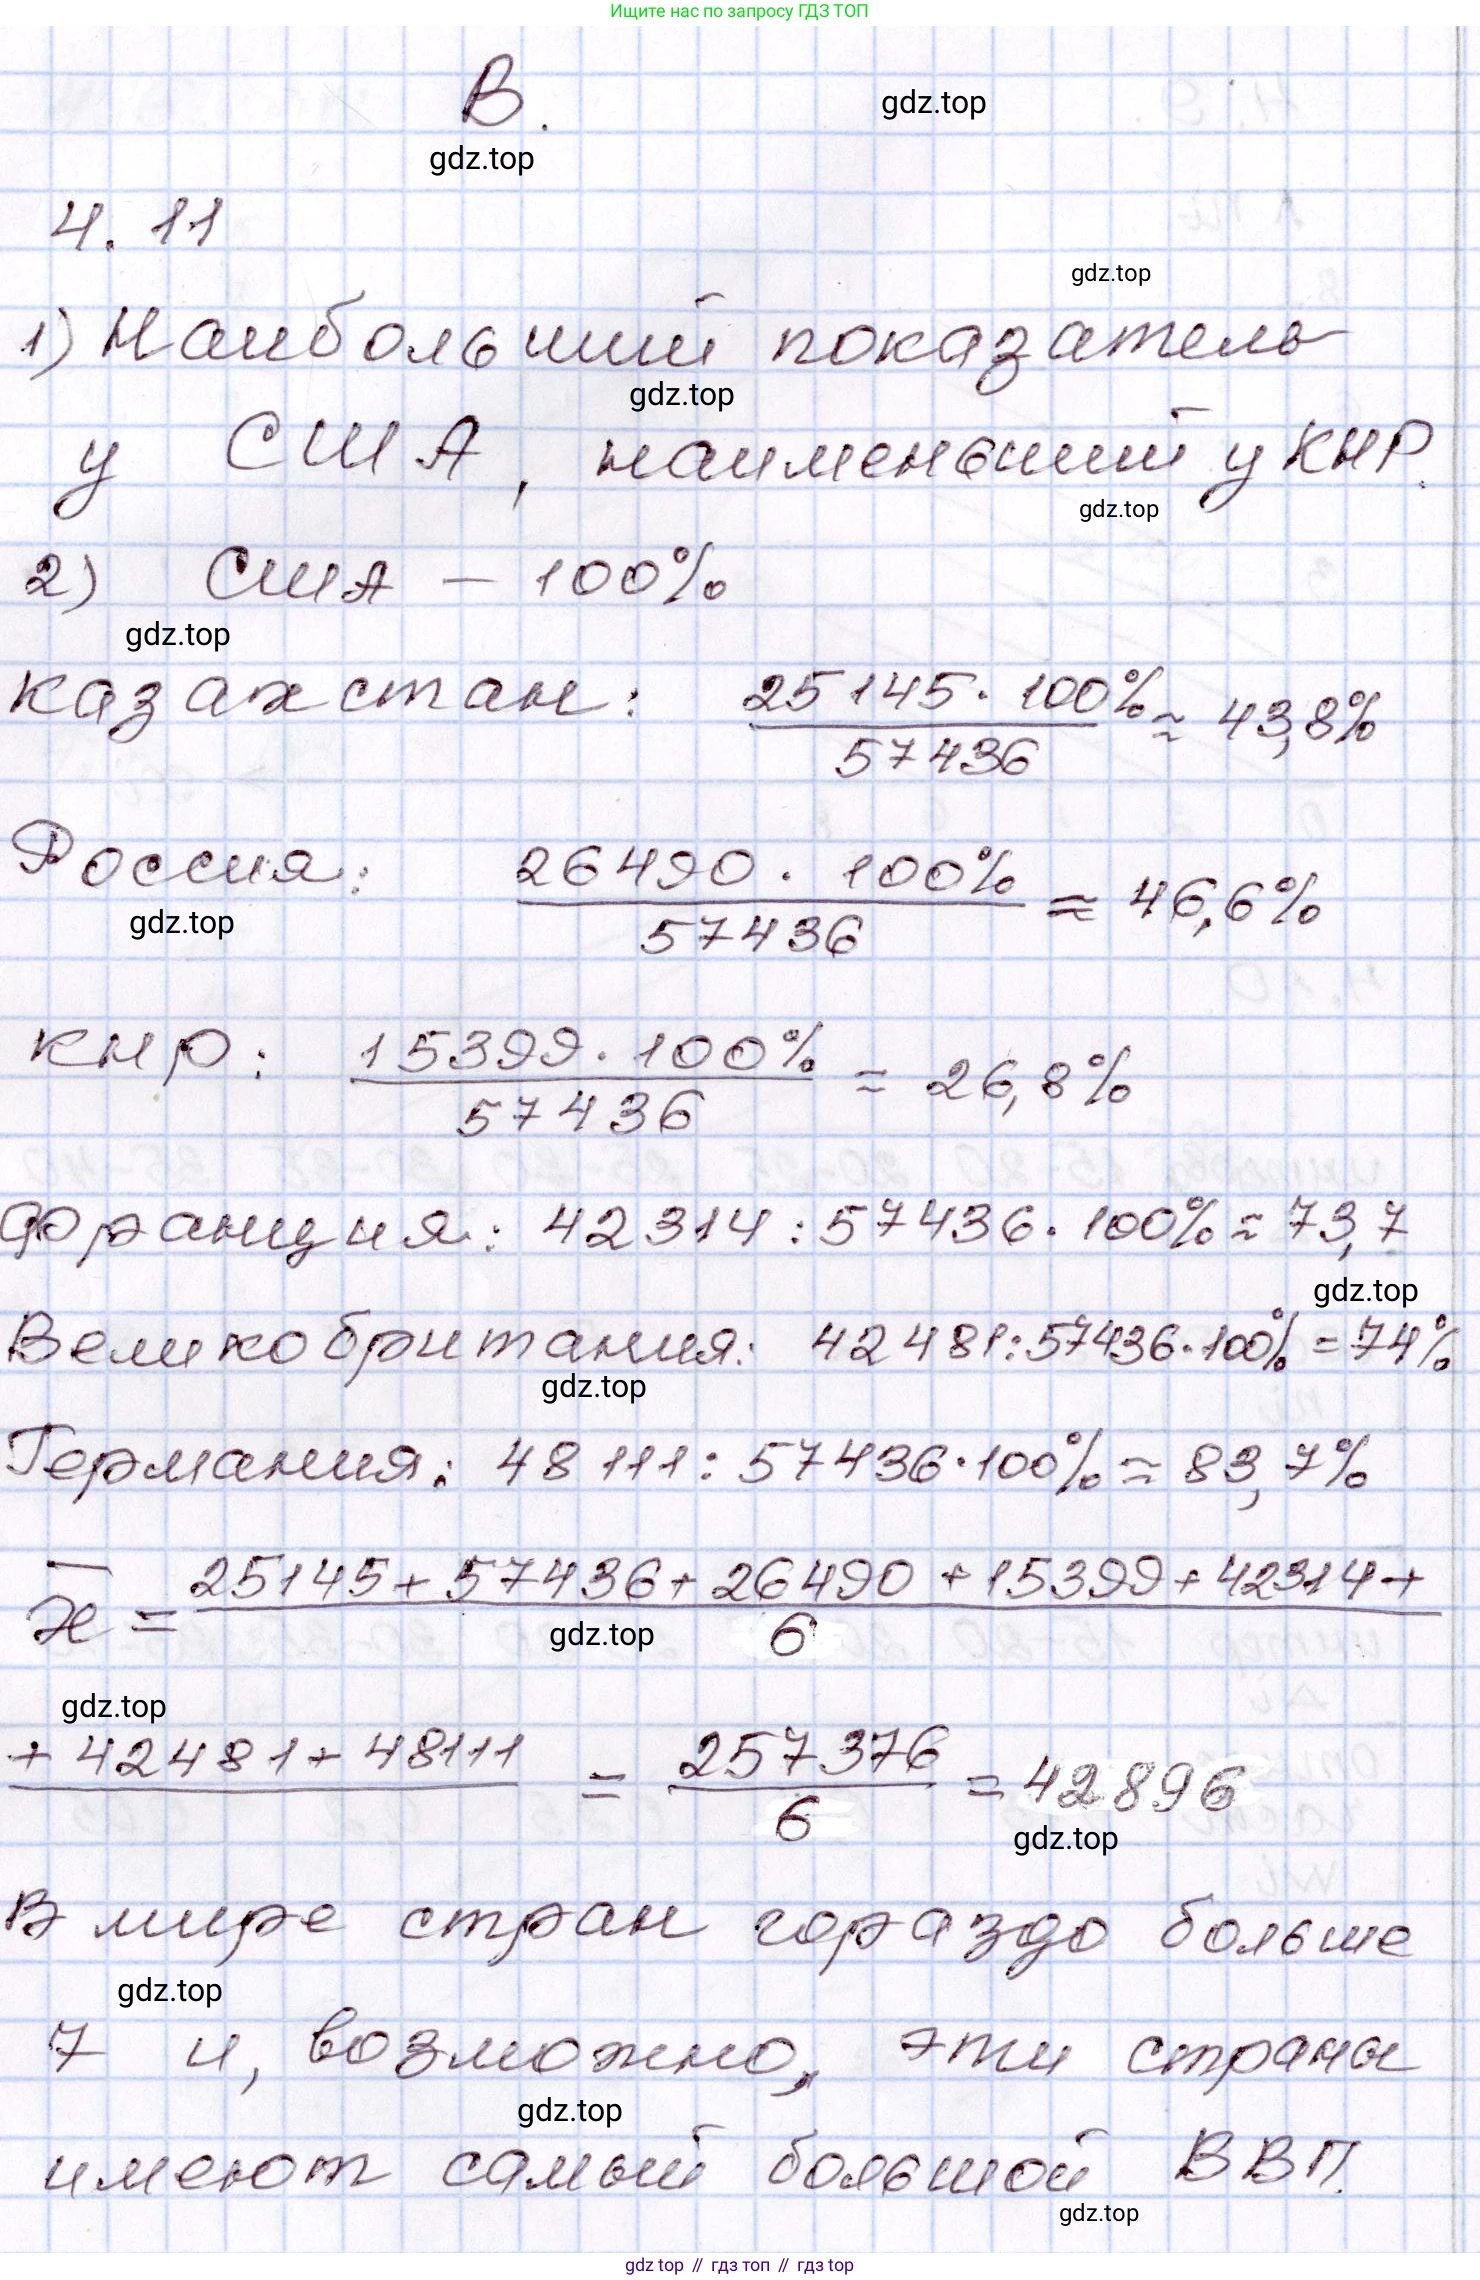 Ищите нас по запросу ГДЗ ТОП
В.
gdz.top
gdz.top
4.11
gdz.top
1) Наибольший показатель
gdz.top
у США, наименьший у КНР.
gdz.top
2) США – 100%
gdz.top
Казахстан: 25145 · 100% / 57436 ≈ 43,8%
Россия: 26490 · 100% / 57436 ≈ 46,6%
gdz.top
КНР: 15399 · 100% / 57436 ≈ 26,8%
Франция: 42314 : 57436 · 100% ≈ 73,7
gdz.top
Великобритания: 42481 : 57436 · 100% = 74%
gdz.top
Германия: 48111 : 57436 · 100% ≈ 83,7%
x̄ = 25145 + 57436 + 26490 + 15399 + 42314 + / 6
gdz.top
gdz.top
+ 42481 + 48111 = 257376 / 6 = 42896
gdz.top
В мире стран гораздо больше
gdz.top
7 и, возможно, эти страны
gdz.top
имеют самый большой ВВП.
gdz.top
gdz top // гдз топ // гдз top